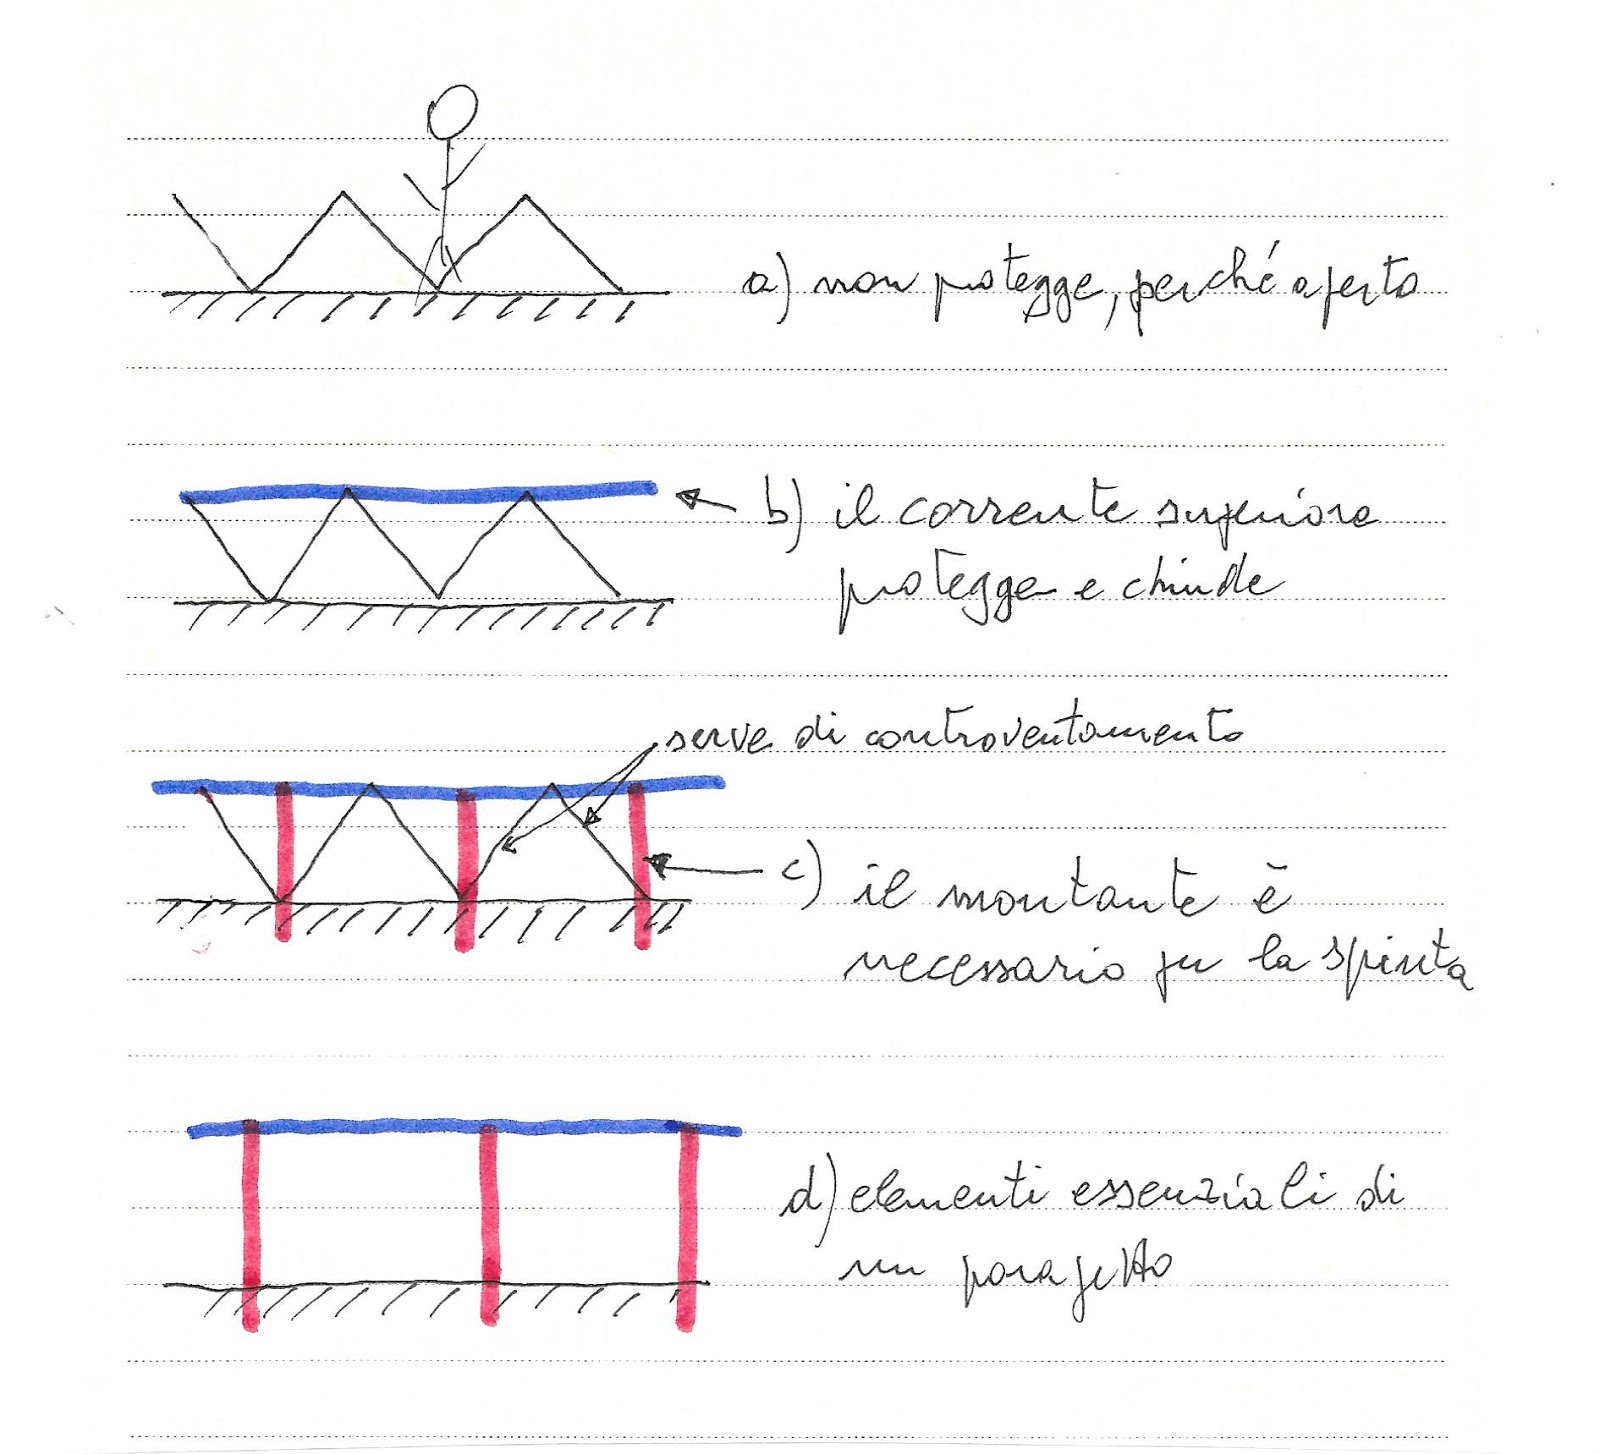 a) non protegge, perché aperto
b) il corrente superiore
protegge e chiude
serve di controventamento
c) il montante è
necessario per la spinta
d) elementi essenziali di
un parapetto